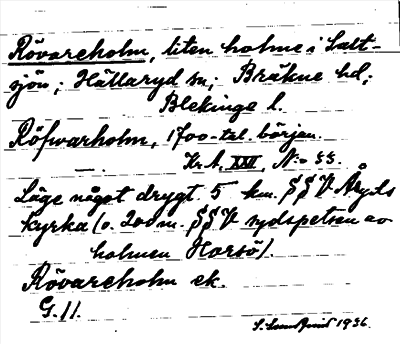 Rövareholm, liten holme i Salt-
sjön; Hällaryd sn; Bräkne hd;
Blekinge l.
Röfwarholm, 1700-tal. början.
Kr. A. XXII, N:o 33.
Läge något drygt 5 km. SSV Åryds
kyrka (o. 200 m. SSV sydspetsen av
holmen Horsö).
Rövareholm ek.
G. 11.
1936.